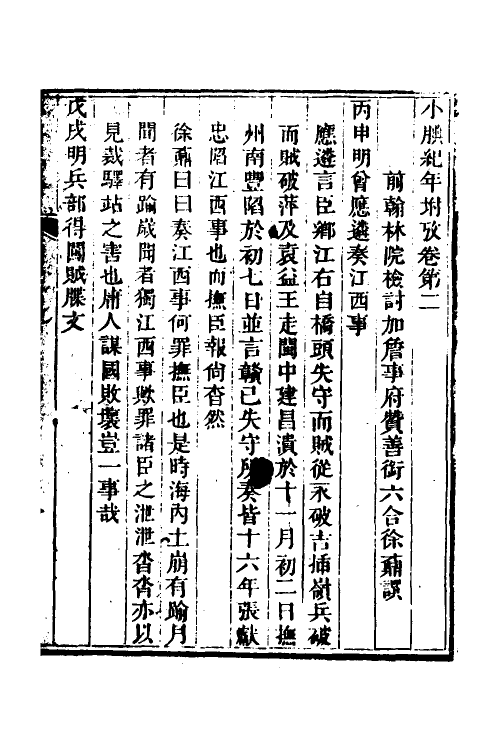 小腆紀年坿攷卷第二
前翰林院檢討加詹事府贊善銜六合徐鼒譔
丙申明曾應遴奏江西事
應遴言臣鄉江右自橋頭失守而賊從永破吉插嶺兵破
而賊破萍及袁益王走閩中建昌潰於十一月初二日撫
州南豐陷於初七日並言贛已失守所奏皆十六年張獻
忠陷江西事也而撫臣報尙杳然
徐鼒曰曰奏江西事何罪撫臣也是時海內土崩有踰月
聞者有踰歲聞者獨江西事歟罪諸臣之泄泄沓沓亦以
見裁驛站之害也庸人謀國敗壞豈一事哉
戊戌明兵部得闖賊牒文